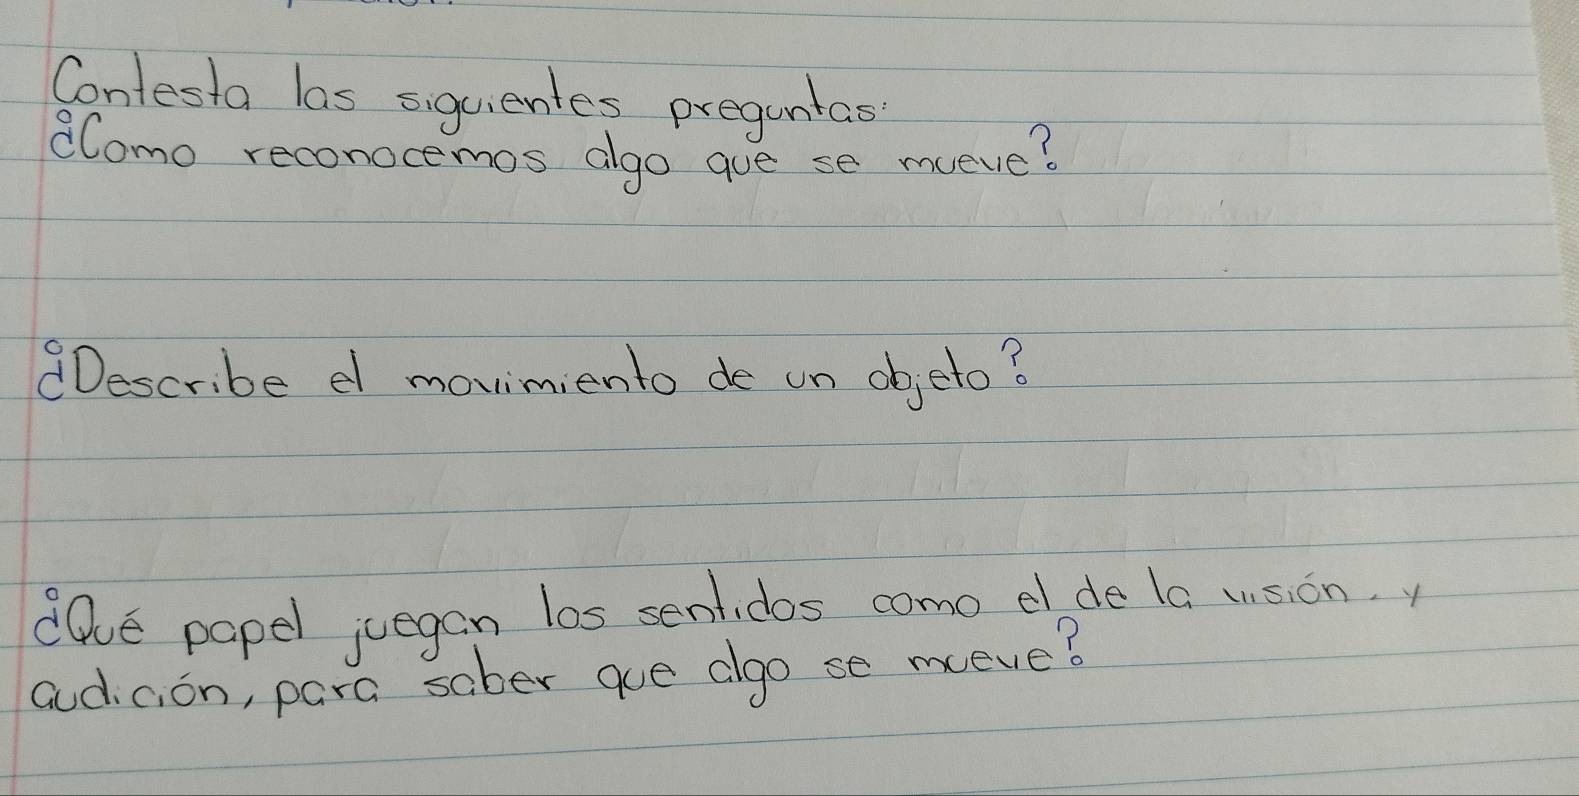 Contesta las siguientes preguntas:
¿Como reconocemos algo que se mueve?
¿Describe el movimiento de un objeto?
¿Qué papel juegan los sentidos como el de la visión. y
audición, para saber que algo se mueve?